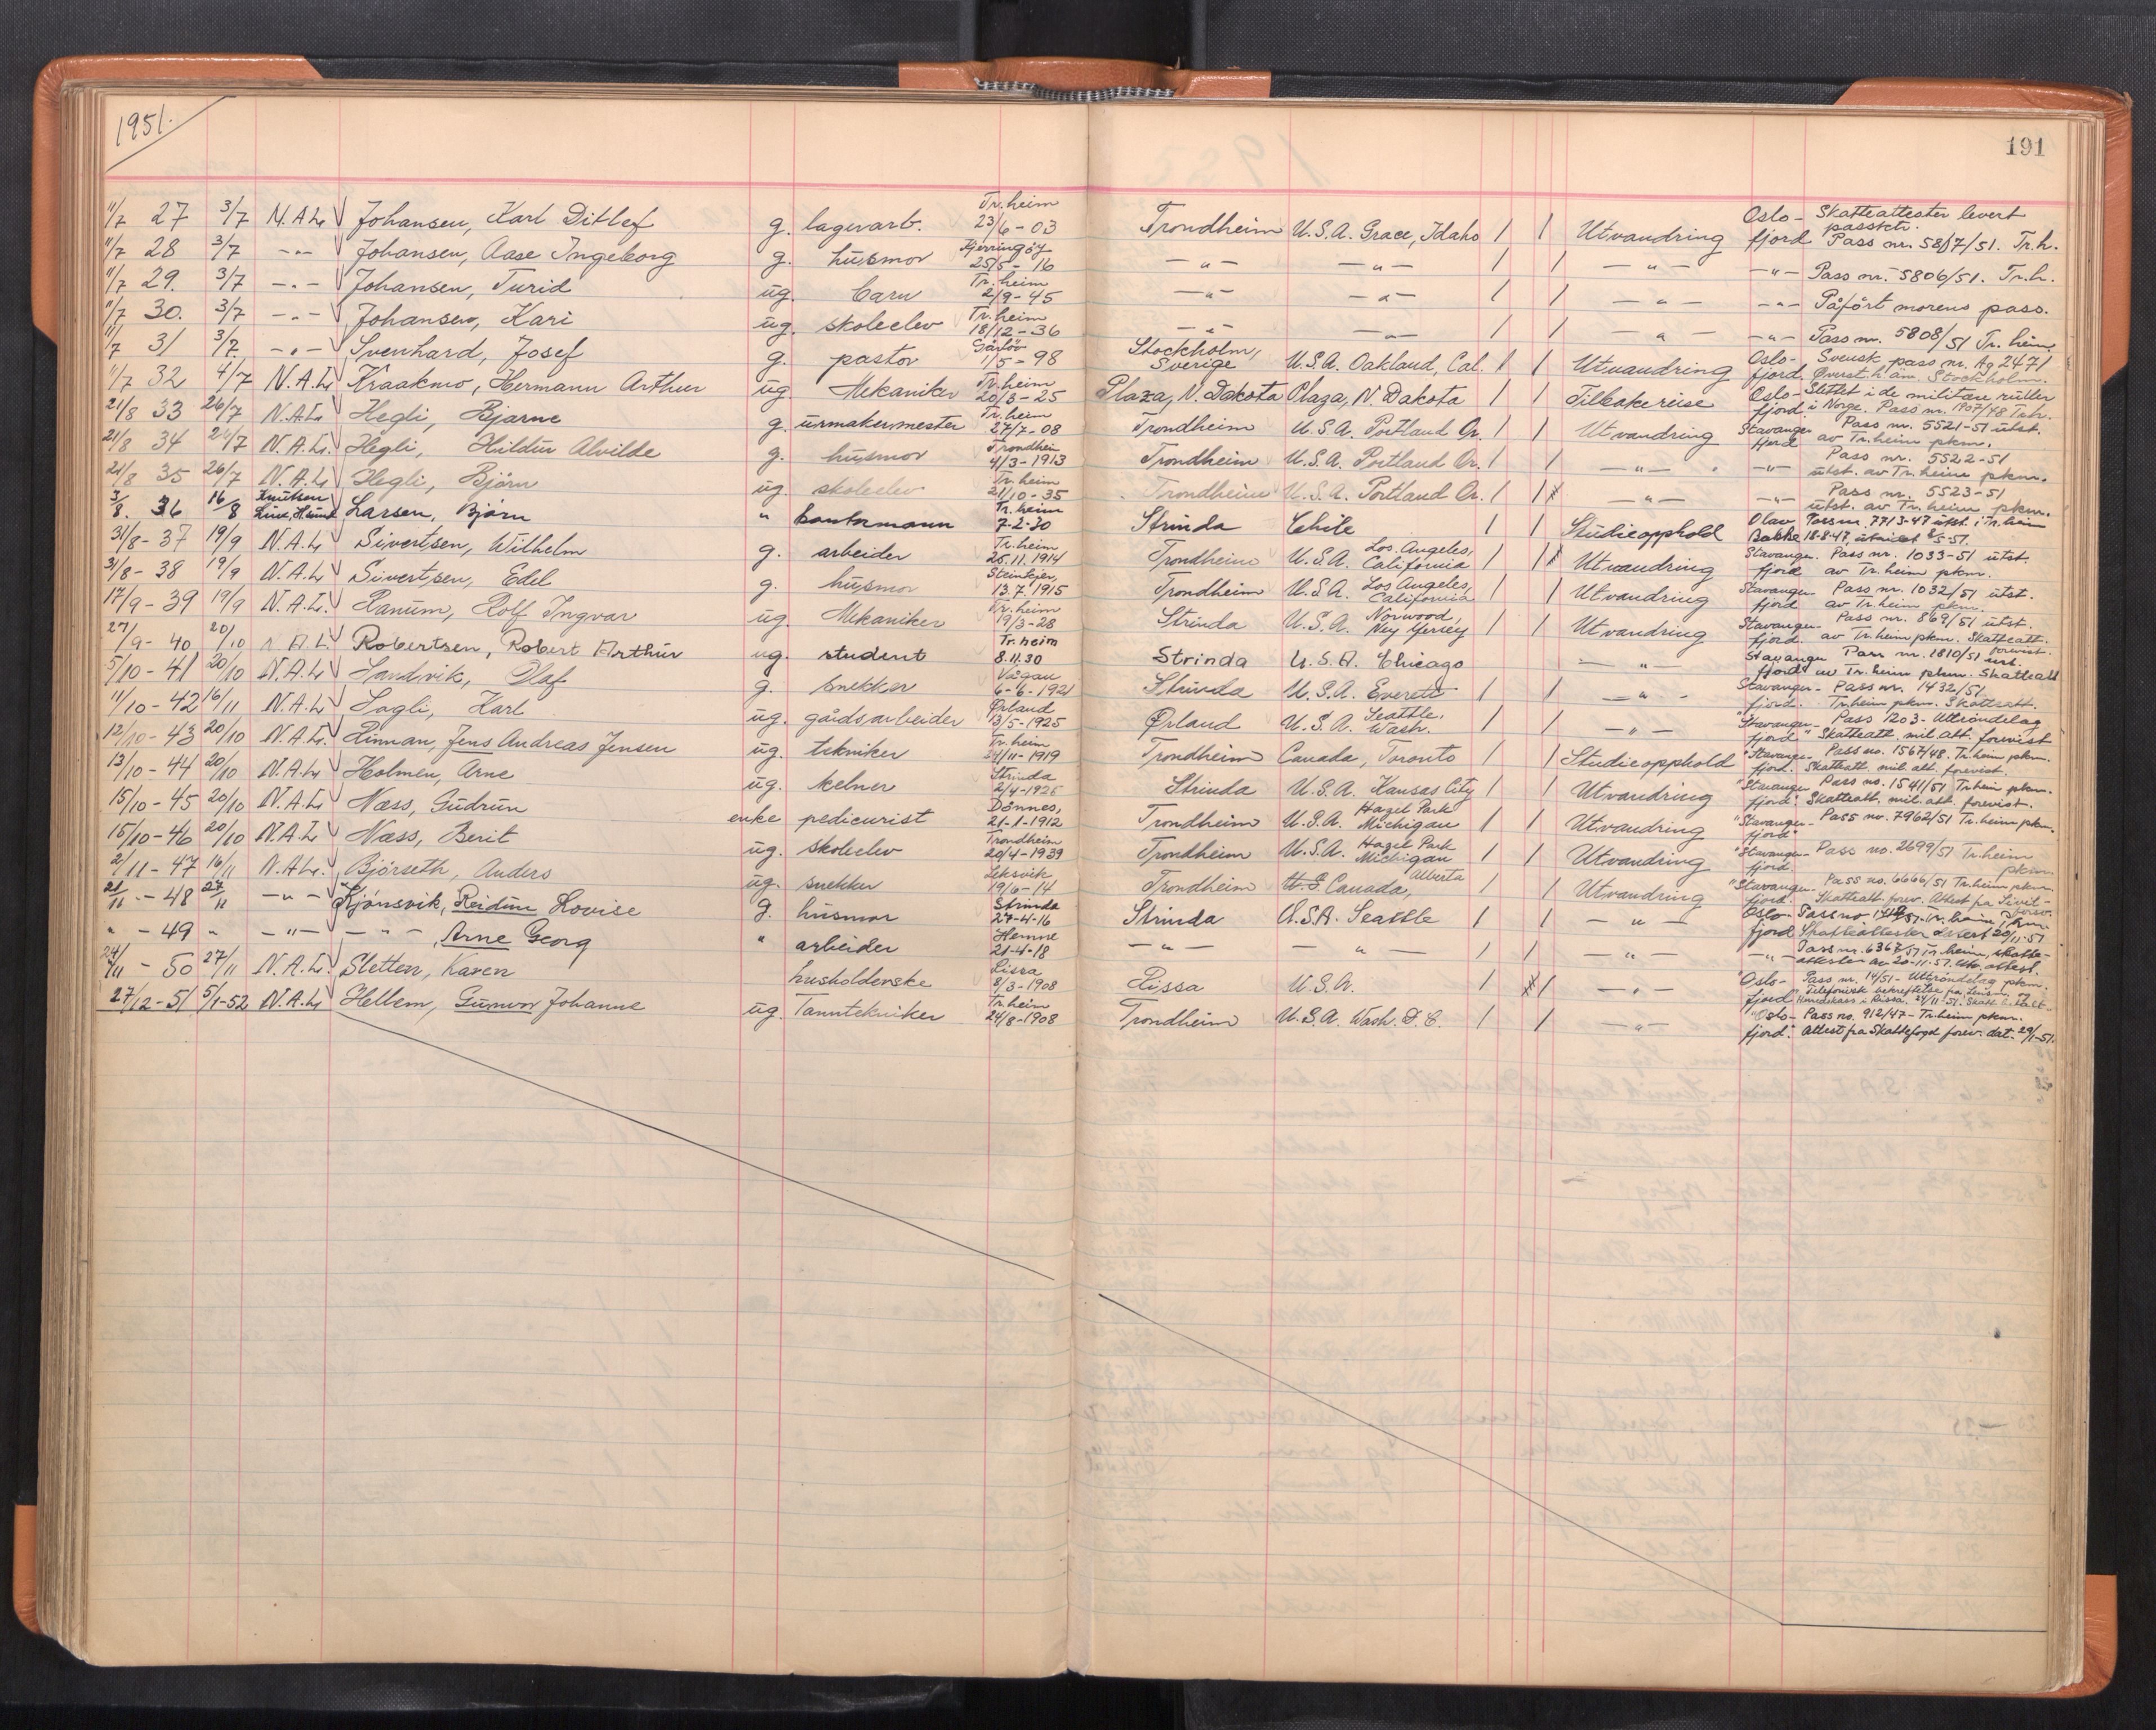 1951.
191
11/7 27 3/7 N.A.L. Johansen, Karl Ditlef g. lagerarb. Tr.heim 23/6-03 Trondheim U.S.A. Grace, Idaho 1 1 Utvandring Oslofjord Skatteattester levert passktr. Pass nr. 5817/51. Tr.h.
11/7 28 3/7 -"- Johansen, Aase Ingeborg g. husmor Kjerringöy 25/5-16 -"- -"- 1 1 -"- -"- Pass nr. 5806/51. Tr.h.
11/7 29. 3/7 -"- Johansen, Turid ug. barn Tr.heim 2/9-45 -"- -"- 1 1 -"- -"- Påført morens pass.
11/7 30. 3/7 -"- Johansen, Kari ug. skoleelev Tr.heim 18/12-36 -"- -"- 1 1 -"- -"- Pass nr. 5808/51 Tr.heim
11/7 31 3/7 -"- Svenhard, Josef g. pastor 1/5-98 Stockholm, Sverige U.S.A. Oakland, Cal. 1 1 Utvandring Oslofjord Svensk pass nr. Ag 2471 Överst.h.äm. Stockholm.
11/7 32 4/7 N.A.L. Kraakmo, Hermann Arthur ug. Mekaniker Tr.heim 20/3-25 Plaza, N. Dakota Plaza, N. Dakota 1 1 Tilbakereise Oslofjord Slettet i de militære ruller i Norge. Pass nr. 1907/48 Trh.
21/8 33 26/7 N.A.L. Hegli, Bjarne g. urmakermester Tr.heim 27/7-08 Trondheim U.S.A. Portland Or. 1 1 Utvandring Stavangerfjord Pass nr. 5521-51 utst. av Tr.heim pkm.
21/8 34 26/7 N.A.L. Hegli, Hildur Alvilde g. husmor Trondheim 4/3-1913 Trondheim U.S.A. Portland Or. 1 1 -"- -"- Pass nr. 5522-51 utst. av Tr.heim pkm.
21/8 35 26/7 N.A.L. Hegli, Björn ug. skoleelev Tr.heim 21/10-35 Trondheim U.S.A. Portland Or. 1 1 -"- -"- Pass nr. 5523-51 utst. av Tr.heim pkm.
3/8. 36 16/8 Knutsen Line, Larsen, Björn " Tr.heim 7-2-30 Strinda Chile 1 1 Studieopphold Olav Bakke Pass nr. 7713-47 utst. i Tr.heim 18-8-47,
31/8-37 19/9 N.A.L. Sivertsen, Wilhelm g. arbeider Tr.heim 25.11.1914 Trondheim U.S.A. Los Angeles, California 1 1 Utvandring Stavangerfjord Pass nr. 1033-51 utst. av Tr.heim pkm.
31/8-38 19/9 N.A.L. Sivertsen, Edel g. husmor Steinkjer, 13.7.1915 Trondheim U.S.A. Los Angeles, California 1 1 Utvandring Stavangerfjord Pass nr. 1032/51 utst. av Tr.heim pkm.
17/9-39 19/9 N.A.L. Ranum, Rolf Ingvar ug. Mekaniker Tr.heim 19/3-28 Strinda U.S.A. Norwood, Ney Yersey 1 1 Utvandring Stavangerfjord. Pass nr. 869/51 utst. av Tr.heim pkm. Skatteatt. forevist.
27/9-40 20/10 N.A.L. Robertsen, Robert Arthur ug. student Tr.heim 8.11.30 Strinda U.S.A. Chicago -"- Stavangerfjord Pass nr. 1810/51 utst. av Tr.heim pkm. Skatteatt
5/10-41 20/10 N.A.L. Sandvik, Olaf g. snekker Vågan 6-6-1921 Strinda U.S.A. Everett 1 1 -"- Stavangerfjord. Pass nr. 1432/51 Tr.heim pkm. Skatteatt.
11/10-42 16/11 N.A.L. Sagli, Karl ug. gårdsarbeider Ørland 13/5-1925 Ørland U.S.A. Seattle, Wash. 1 1 -"- "Stavangerfjord" Pass 1203-Uttröndelag Skatteatt. mil. att. forevist
12/10-43 20/10 N.A.L. Rinnan, Jens Andreas Jensen ug. tekniker Tr.heim 24/11-1919 Trondheim Canada, Toronto 1 1 Studieopphold "Stavangerfjord." Pass no. 1567/48. Tr.heim pkm. Skatteatt. mil. att. forevist.
13/10-44 20/10 N.A.L. Holmen, Arne ug. kelner Strinda 2/4-1925 Strinda U.S.A. Kansas City 1 1 Utvandring "Stavangerfjord". Pass no. 1541/51 Tr.heim pkm. Skatteatt. mil. att. forevist.
15/10-45 20/10 N.A.L. Næss, Gudrun enke pedicurist Dönnes, 21-1-1912 Trondheim U.S.A. Hazel Park Michigan 1 1 Utvandring "Stavangerfjord" Pass no. 7962/51 Tr.heim pkm.
15/10-46 20/10 N.A.L. Næss, Berit ug. skoleelev Trondheim 20/4-1939 Trondheim U.S.A. Hazel Park Michigan 1 1 Utvandring "Stavangerfjord. Pass no. 2699/51 Tr.heim pkm.
2/11-47 16/11 N.A.L. Bjørseth, Anders ug. snekker Leksvik 19/6-14 Trondheim U.S. Canada, Alberta 1 1 Utvandring "Stavangerfjord. Pass no. 6666/51 Tr.heim pkm. Skatteatt. forev. Attest fra Sivilforsv.
21/11-48 27/11 -"- Kjønsvik, Reidun Lovise g. husmor Strinda 27-4-16 Strinda U.S.A. Seattle 1 1 -"- Oslofjord Pass no Tr.heim pkm. Skatteattester levert 20/11-51
" -49 " -"- -"-, Arne Georg " arbeider Hemne 21-4-18 -"- -"- 1 1 -"- -"- Pass nr. 6367/51 Tr.heim, skatteattester av 20-11-51. attest.
24/11-50 27/11 N.A.L. Sletten, Karen husholderske Rissa 8/3-1908 Rissa U.S.A. 1 1 -"- "Oslofjord" Pass nr. 14/51-Uttröndelag pkm. Telefonisk bekreftelse fra Lensm. og Herredskass. i Rissa, 24/11-51.
27/12-51 5/1-52 N.A.L. Hellem, Gunvor Johanne ug. Tanntekniker Tr.heim 24/8-1908 Trondheim U.S.A. Wash. D.C. 1 1 -"- "Oslofjord." Pass no. 912/47-Tr.heim pkm. Attest fra Skattefogd forev. dat. 29/1-51.